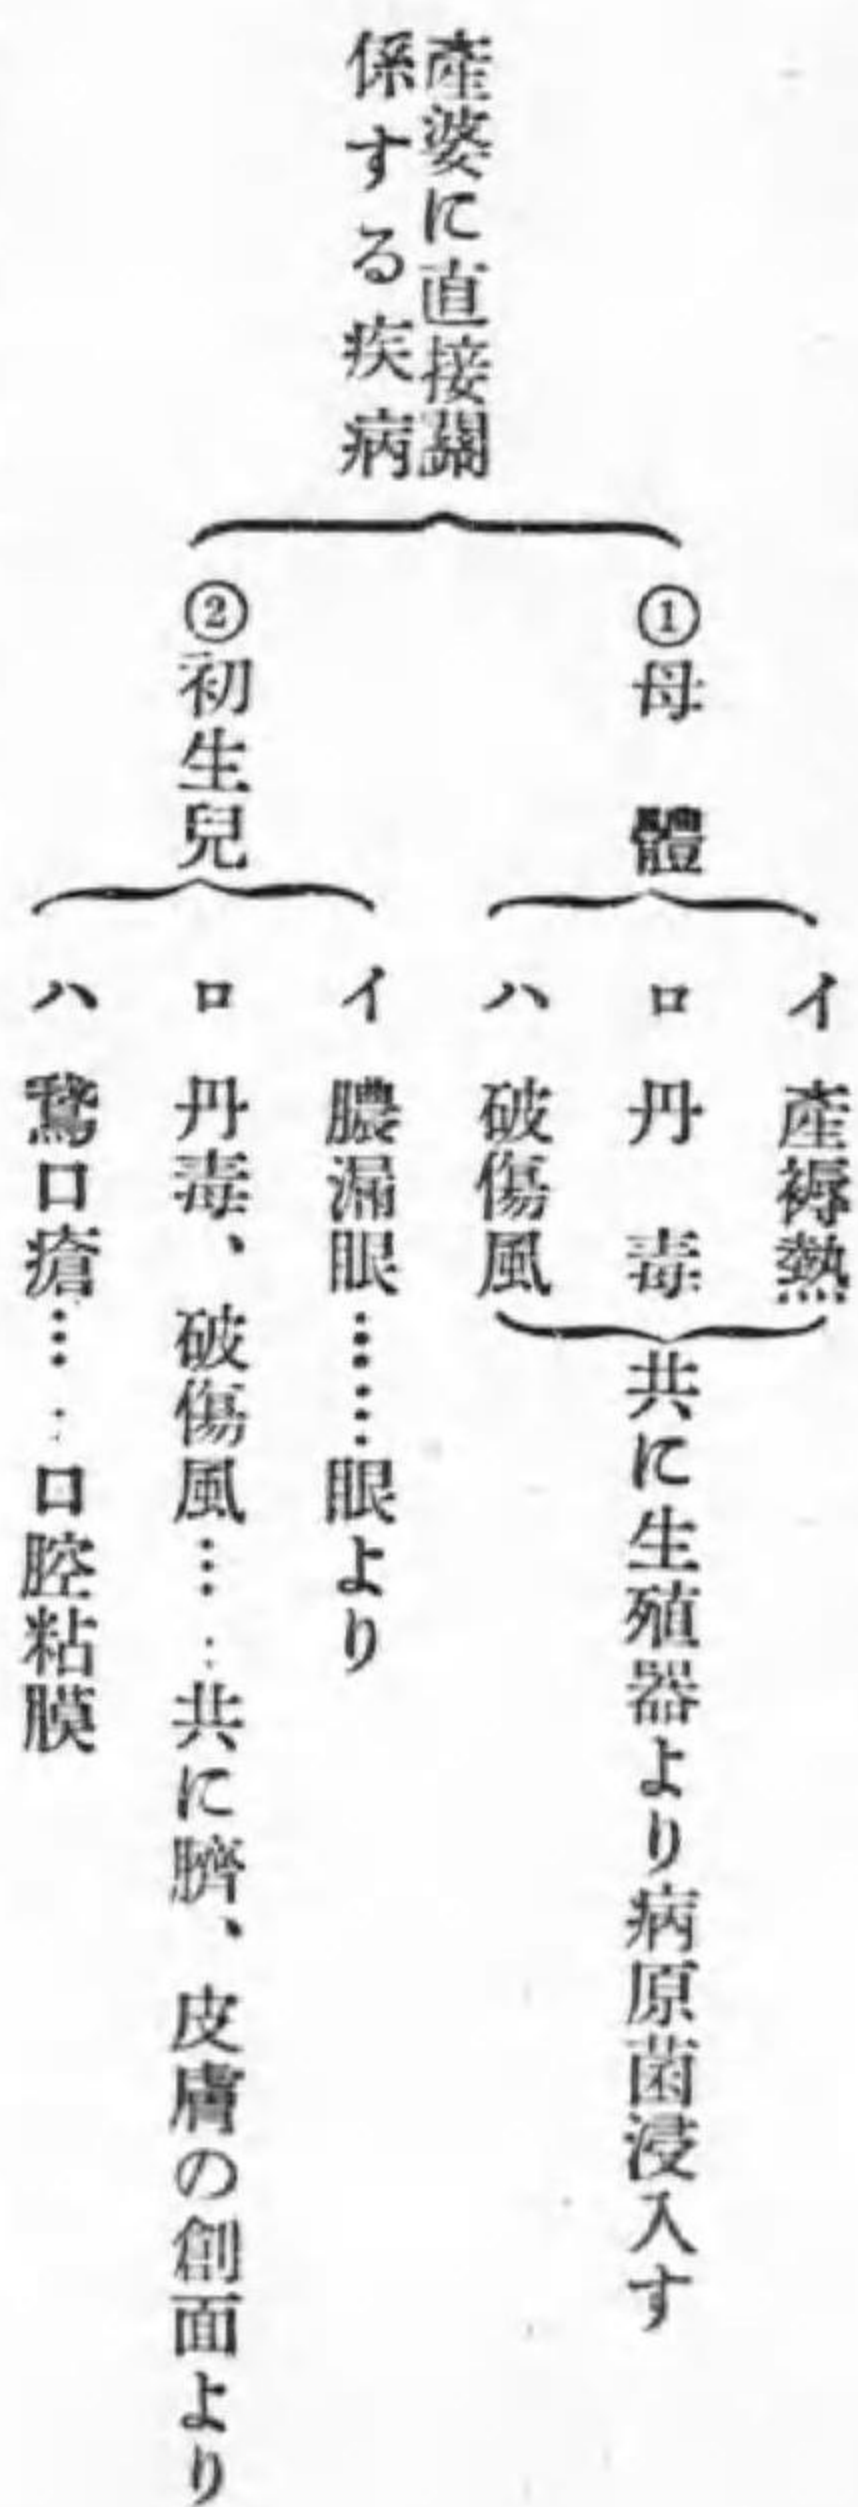 産婆に直接關
係する疾病
①母體
イ 產褥熱
ロ 丹毒
ハ 破傷風
共に生殖器より病原菌浸入す
②初生兒
イ 膿漏眼……眼より
ロ 丹毒、破傷風……共に臍、皮膚の創面より
ハ 鵞口瘡……口腔粘膜